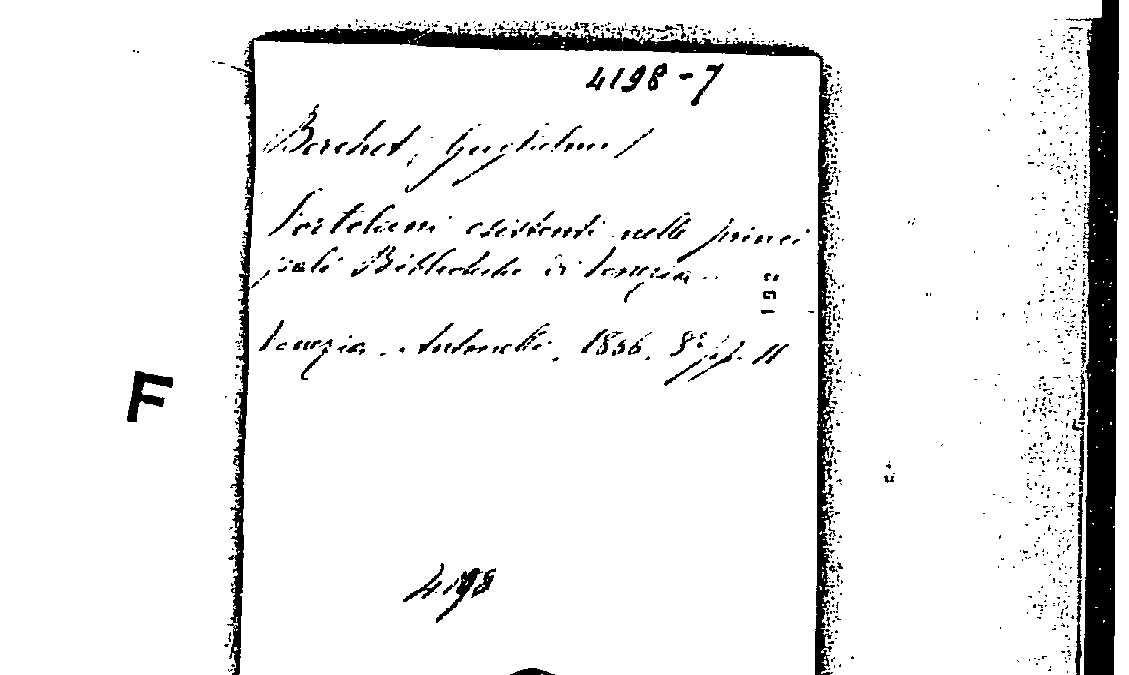 4198-7
Berchet, Guglielmo /
Portolani esistenti nelle princi
pali Biblioteche di Venezia.
Venezia. Antonelli, 1866. 8° pp. 11
F
4198